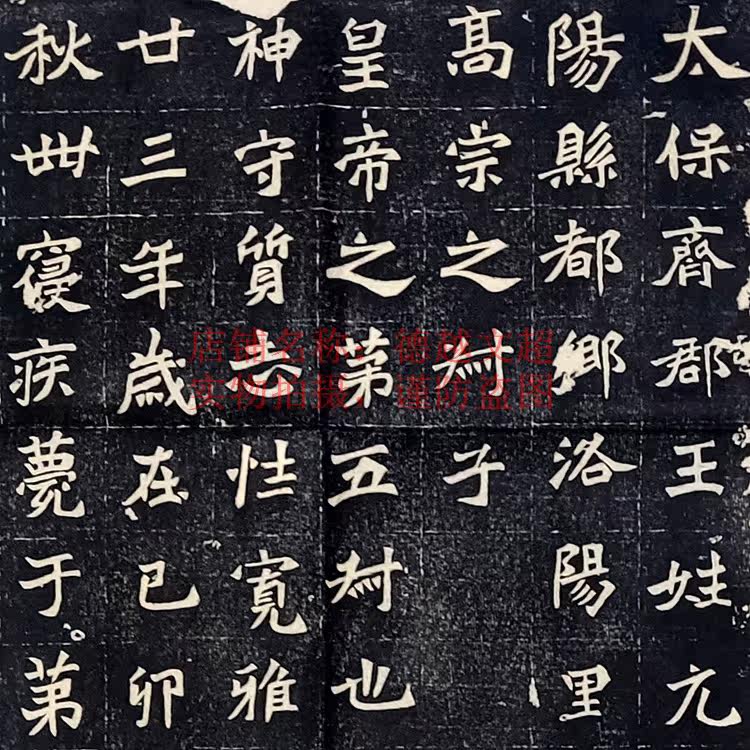 太保齊郡王姓元
陽縣都鄉洛陽里
髙宗之叔子
皇帝之第五叔也
神守質志性寬雅
廿三年歲在己卯
秋卌寢疾薨于第
店铺名称：德文超
实物拍摄，谨防盗图